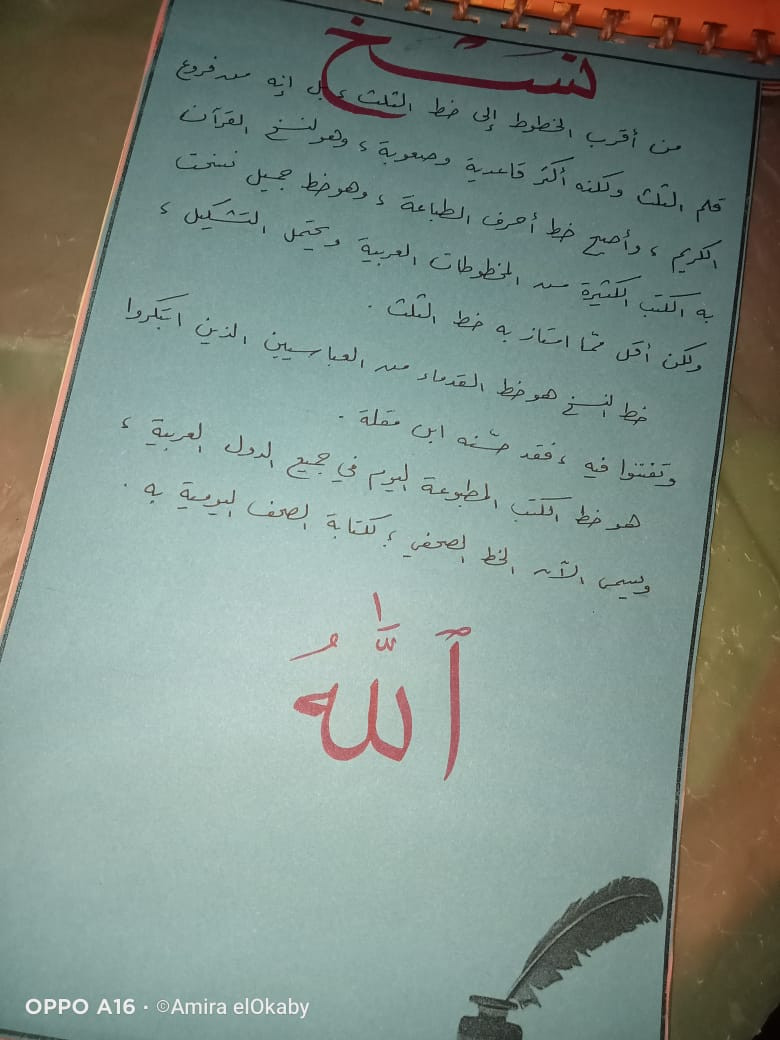 نسخ
من أقرب الخطوط إلى خط الثلث، بل إنه من فروع
قلم الثلث ولكنه أكثر قاعدية وصعوبة، وهو لنسخ القرآن
الكريم، وأصبح خط أحرف الطباعة، وهو خط جميل نسخت
به الكتب الكثيرة من المخطوطات العربية ويحتمل التشكيل،
ولكن أقل ممّا امتاز به خط الثلث.
خط النسخ هو خط القدماء من العباسيين الذين ابتكروا
وتفننوا فيه، فقد حسّنه ابن مقلة.
هو خط الكتب المطبوعة اليوم في جميع الدول العربية،
ويسمى الآن الخط الصحفي؛ لكتابة الصحف اليومية به.
ٱللَّٰهُ
OPPO A16 · ©Amira elOkaby